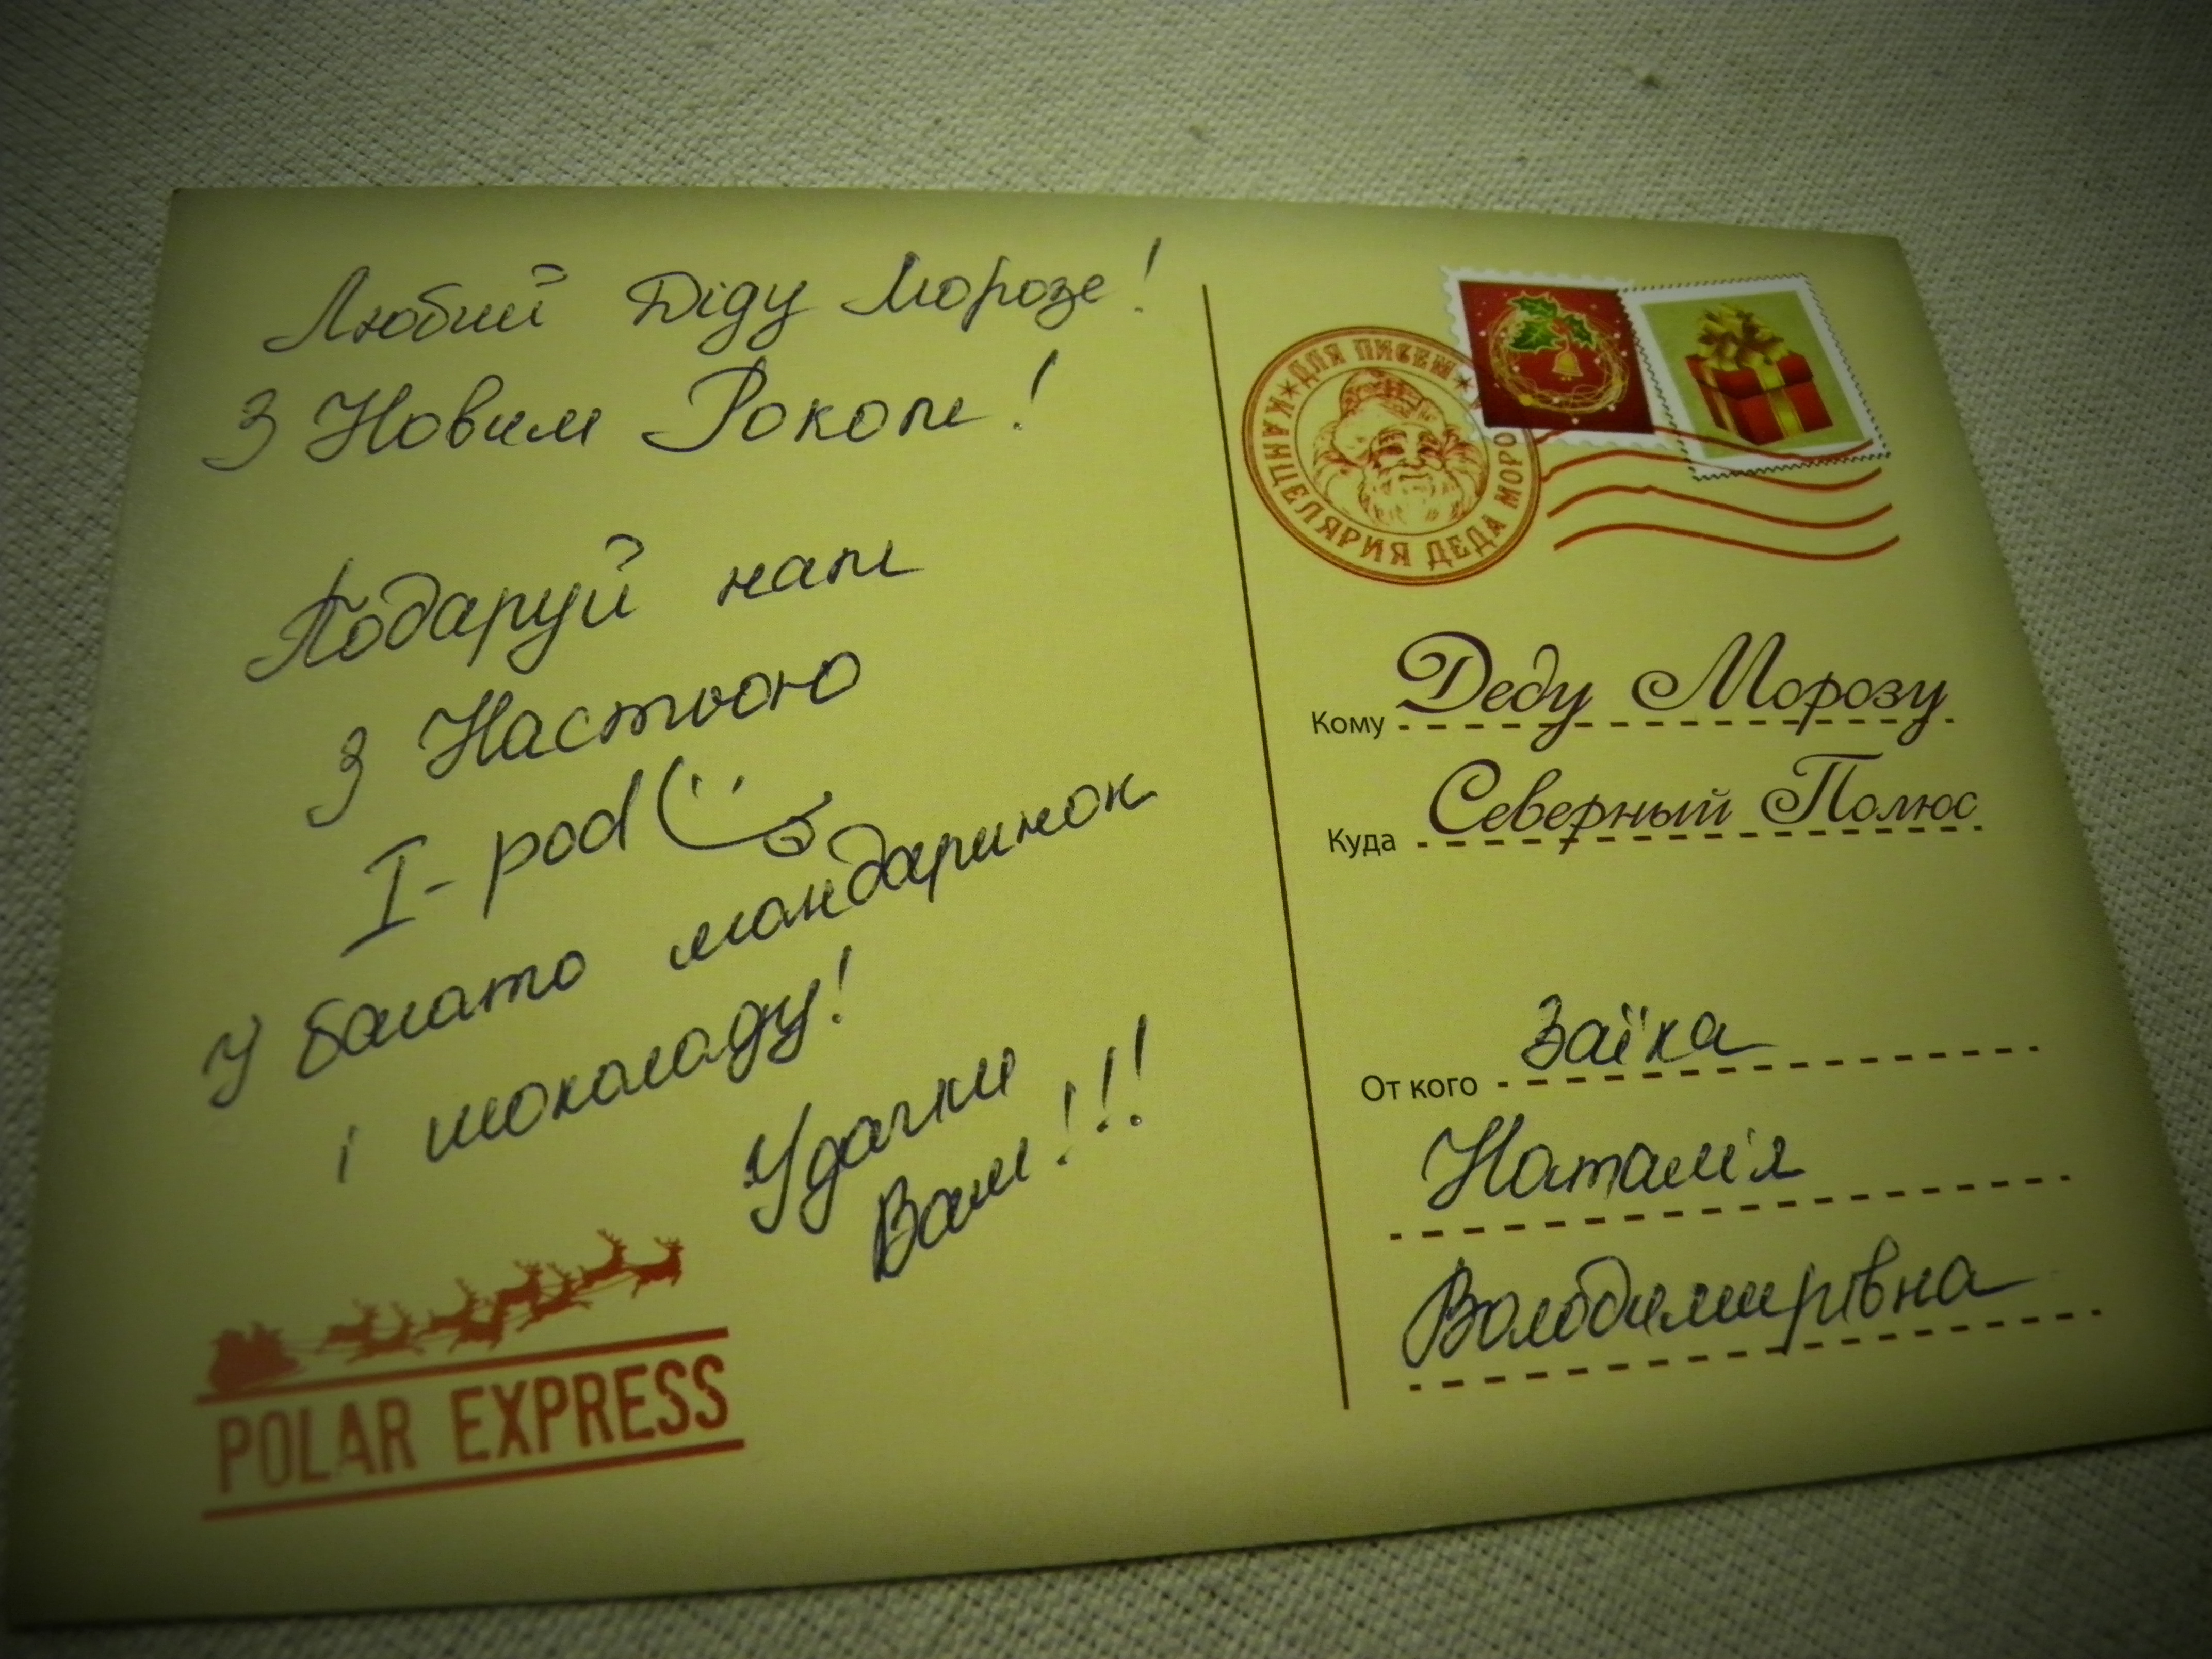 Любий Діду Морозе!
З Новим Роком!
Подаруй нам
з Настьою
I-pod
У багато мандаринок
і шоколаду!
Удачи
Вам!!!
POLAR EXPRESS
★ДЛЯ ПИСЕМ★
КАНЦЕЛЯРИЯ ДЕДА МОРО
Кому Деду Морозу
Куда Северный Полюс
От кого Заїка
Наталія
Володимирівна